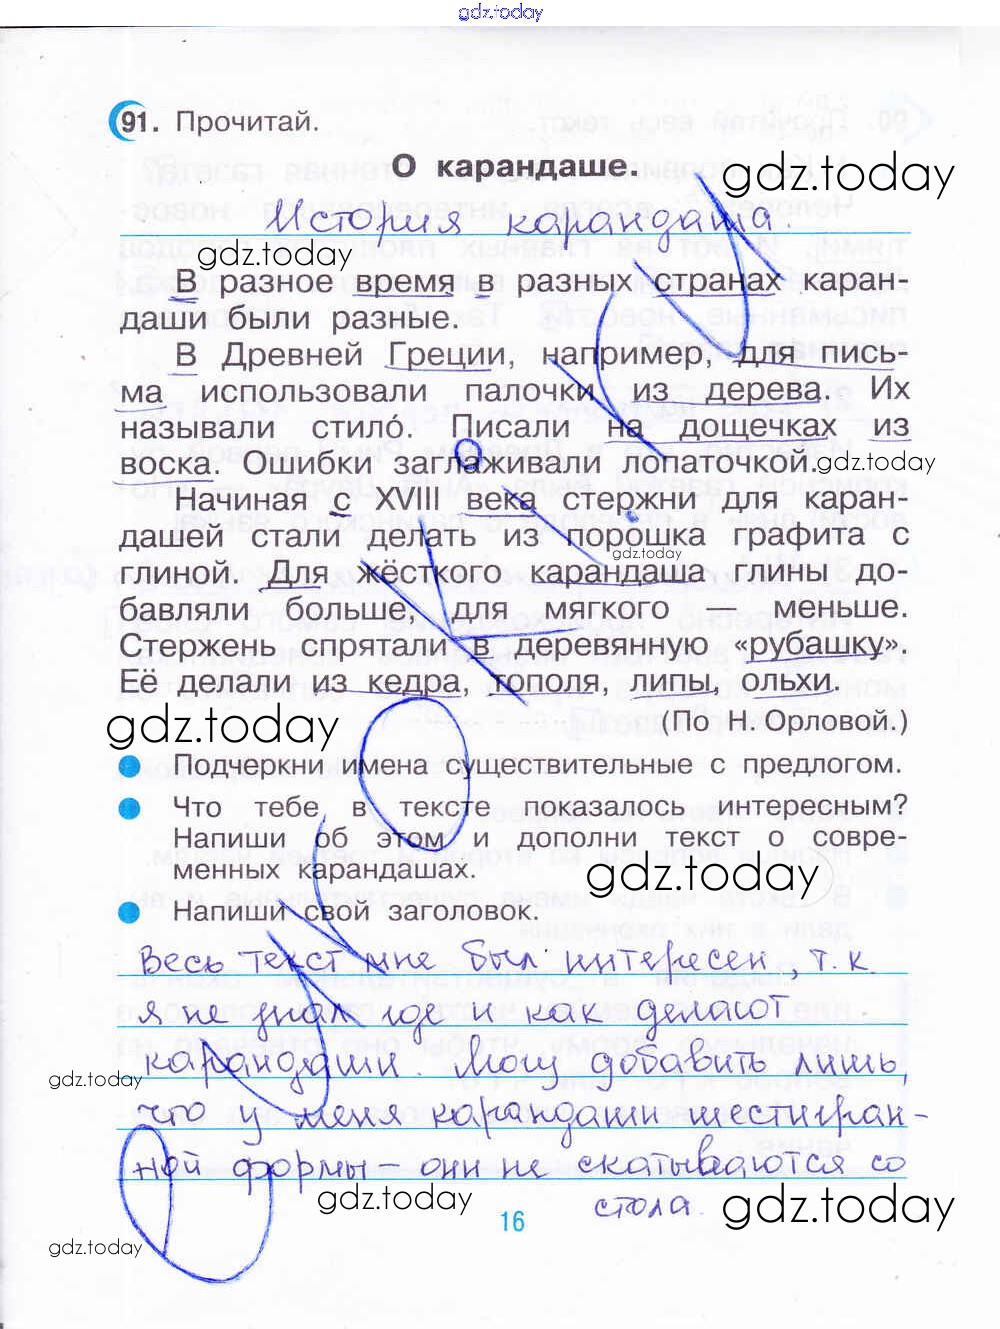 gdz.today
91. Прочитай.
О карандаше
gdz.today
История карандаша.
gdz.today
В разное время в разных странах каран-
даши были разные.
В Древней Греции, например, для пись-
ма использовали палочки из дерева. Их
называли стило́. Писали на дощечках из
воска. Ошибки заглаживали лопаточкой.
gdz.today
Начиная с XVIII века стержни для каран-
дашей стали делать из порошка графита с
gdz.today
глиной. Для жёсткого карандаша глины до-
бавляли больше, для мягкого — меньше.
Стержень спрятали в деревянную «рубашку».
Её делали из кедра, тополя, липы, ольхи.
gdz.today
(По Н. Орловой.)
Подчеркни имена существительные с предлогом.
Что тебе в тексте показалось интересным?
Напиши об этом и дополни текст о совре-
менных карандашах.
gdz.today
Напиши свой заголовок.
Весь текст мне был интересен, т.к.
я не знал где и как делают
карандаши. Могу добавить лишь,
gdz.today
что у меня карандаши шестигран-
ной формы - они не скатываются со
стола.
gdz.today
16
gdz.today
gdz.today